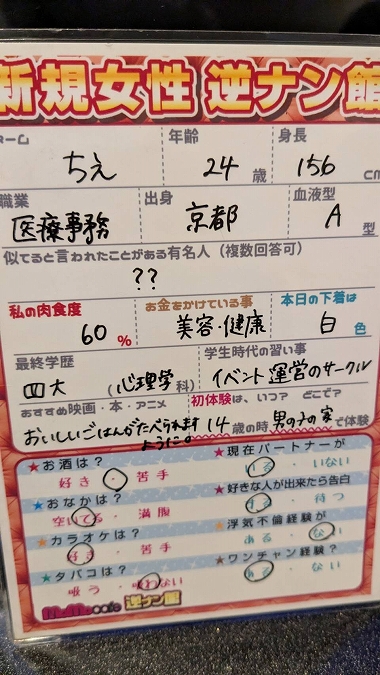 新規女性 逆ナン館
ーム 年齢 身長
ちえ 24歳 156cm
職業 出身 血液型
医療事務 京都 A型
似てると言われたことがある有名人(複数回答可)
??
私の肉食度 お金をかけている事 本日の下着は
60% 美容・健康 白色
最終学歴 学生時代の習い事
四大(心理学科) イベント運営のサークル
おすすめ映画・本・アニメ 初体験は、いつ? どこで?
おいしいごはんがたべられますように。 14歳の時、男の子の家で体験
★お酒は? ★現在パートナーが
好き・苦手 いる・いない
★おなかは? ★好きな人が出来たら告白
空いてる・満腹 する・待つ
★カラオケは? ★浮気不倫経験が
好き・苦手 ある・ない
★タバコは? ★ワンチャン経験?
吸う・吸わない ある・ない
MoMocafe 逆ナン館